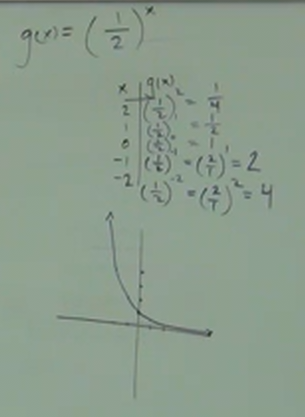 g(x) = (1/2)^x
x | g(x)
2 | (1/2)^2 = 1/4
1 | (1/2)^1 = 1/2
0 | (1/2)^0 = 1
-1 | (1/2)^-1 = (2/1)^1 = 2
-2 | (1/2)^-2 = (2/1)^2 = 4